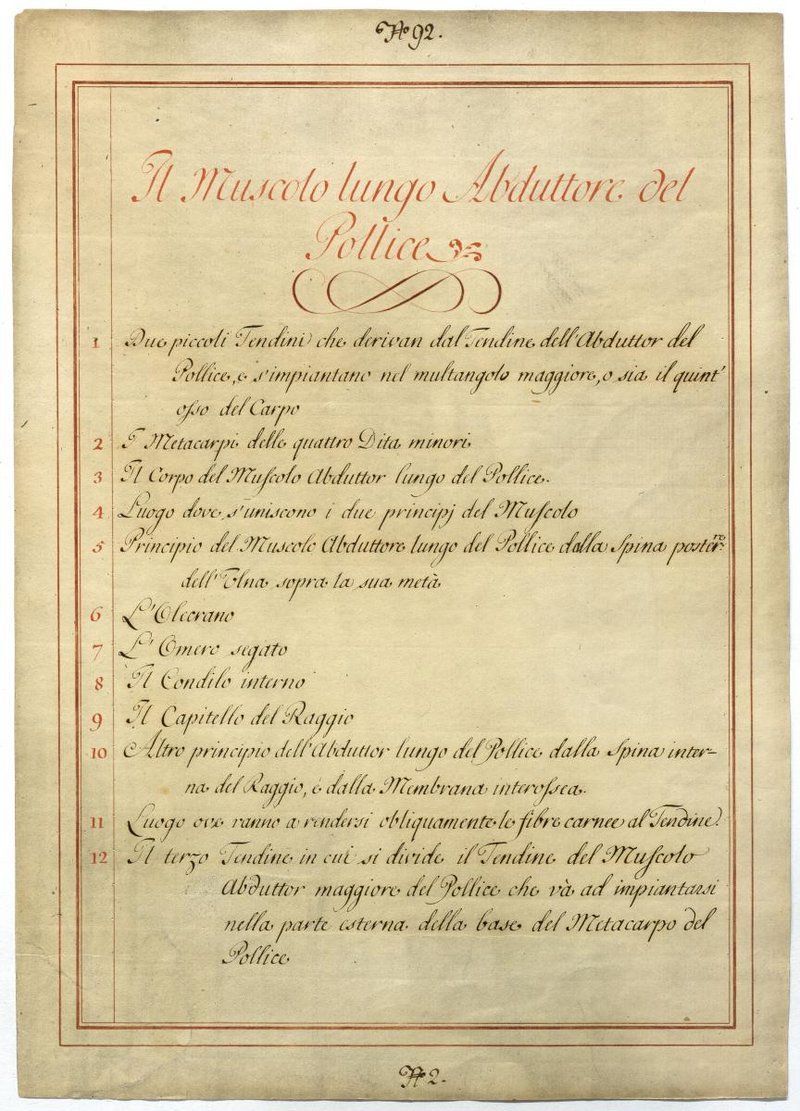 No 92.
Il Muscolo lungo Abduttore del
Pollice
1 Due piccoli Tendini che derivan dal Tendine dell'Abduttor del
Pollice, e s'impiantano nel multangolo maggiore, o sia il quint'
osso del Carpo
2 I Metacarpi delle quattro Dita minori
3 Il Corpo del Muscolo Abduttor lungo del Pollice.
4 Luogo dove s'uniscono i due principj del Muscolo
5 Principio del Muscolo Abduttore lungo del Pollice dalla Spina posterre
dell'Ulna sopra la sua metà
6 L'Olecrano
7 L'Omero segato
8 Il Condilo interno
9 Il Capitello del Raggio
10 Altro principio dell'Abduttor lungo del Pollice dalla Spina inter-
na del Raggio, e dalla Membrana interossea.
11 Luogo ove vanno a rendersi obliquamente le fibre carnee al Tendine.
12 Il terzo Tendine in cui si divide il Tendine del Muscolo
Abduttor maggiore del Pollice che và ad impiantarsi
nella parte esterna della base del Metacarpo del
Pollice
No 2.